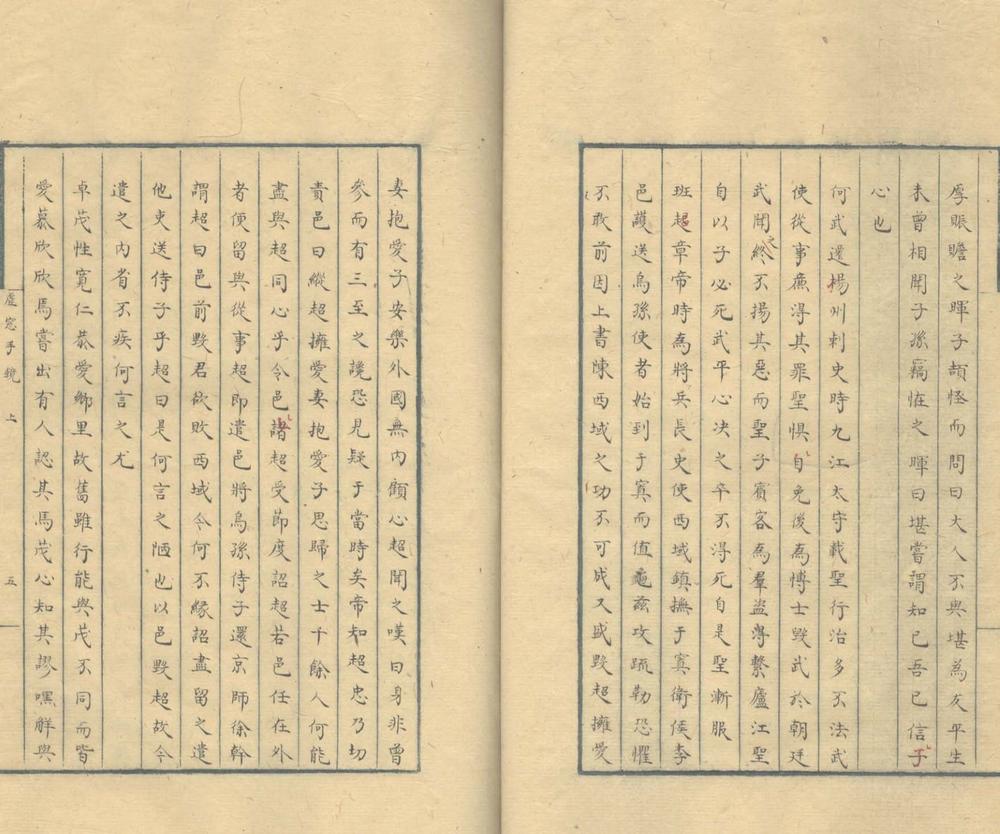 厚賑贍之暉子頡怪而問曰大人不與堪為友平生
未曾相聞子孫竊恠之暉曰堪嘗謂知已吾已信子
心也
何武遷楊州刺史時九江太守戴聖行治多不法武
使從事廉得其罪聖惧自免後為愽士毀武於朝廷
武聞之終不揚其惡而聖子賓客為羣盗淂繫廬江聖
自以子必死武平心决之卒不淂死自是聖漸服
班超章帝時為將兵長史使西域鎮撫于寘衛侯李
邑護送烏孫使者始到于寘而值龜玆攻疏勒恐懼
不敢前因上書陳西域之功不可成又盛毀超擁愛
妻抱愛子安樂外國無内顧心超聞之嘆曰身非曾
参而有三至之讒恐見疑于當時矣帝知超忠乃切
責邑曰縱超擁愛妻抱愛子思歸之士千餘人何能
盡與超同心乎令邑諸超受節度詔超若邑任在外
者便留與從事超即遣邑將烏孫侍子還京師徐幹
謂超曰邑前毀君欲敗西域今何不緣詔盡留之遣
他吏送侍子乎超曰是何言之陋也以邑毀超故今
遣之内省不疾何言之尤
卓茂性寬仁恭愛鄉里故舊雖行能與茂不同而皆
愛慕欣欣焉嘗出有人認其馬茂心知其謬嘿解與
虚窓手鏡 上 五